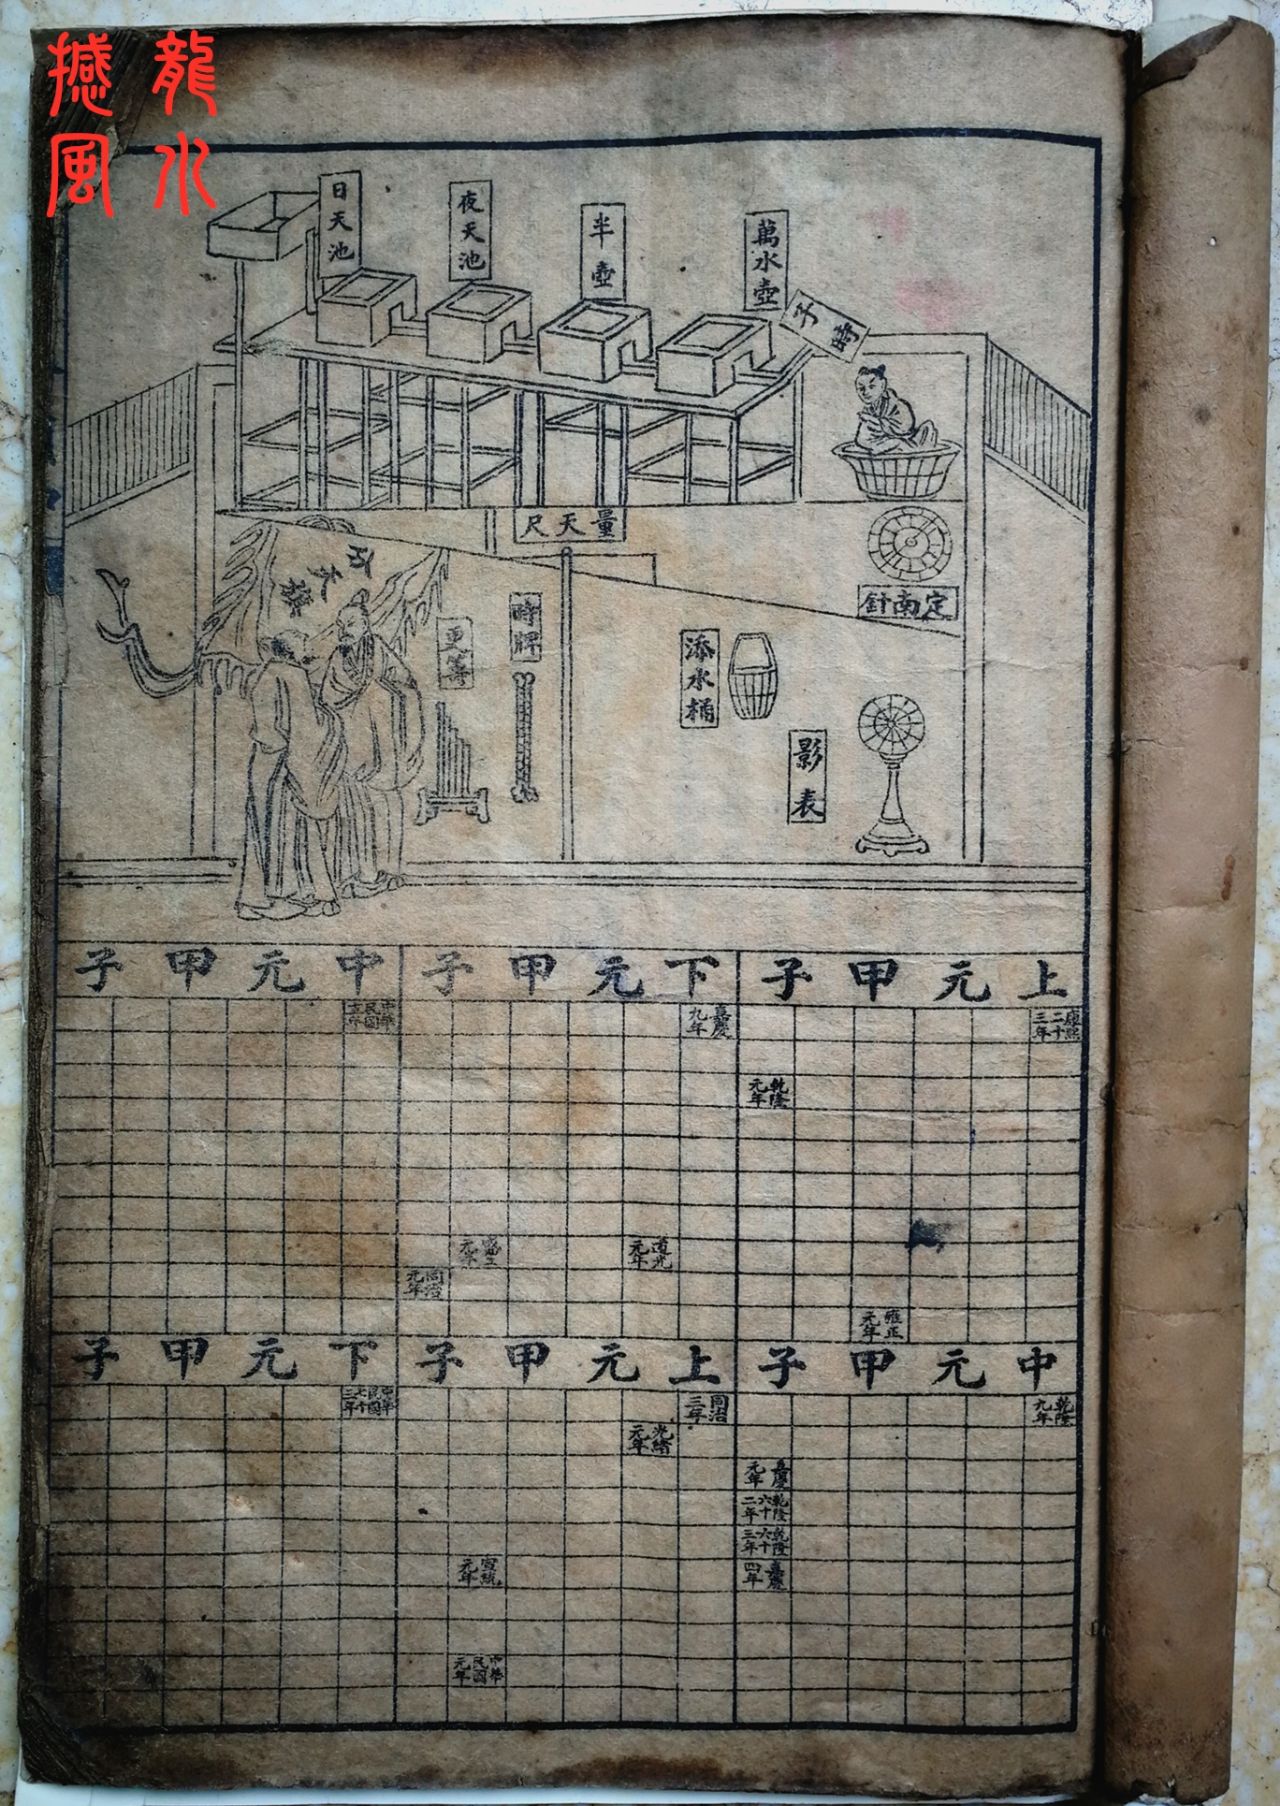 龍水
撼風
日天池
夜天池
半壺
萬水壺
子時
量天尺
定南針
更籌
時牌
添水桶
影表
上元甲子
康熙二十三年
乾隆元年
雍正元年
下元甲子
嘉慶九年
道光元年
咸豐元年
同治元年
中元甲子
中華民國
中元甲子
乾隆九年
嘉慶元年
乾隆六十二年
乾隆六十三年
嘉慶四年
上元甲子
同治三年
光緒元年
宣統元年
中華民國元年
下元甲子
中華民國七十三年